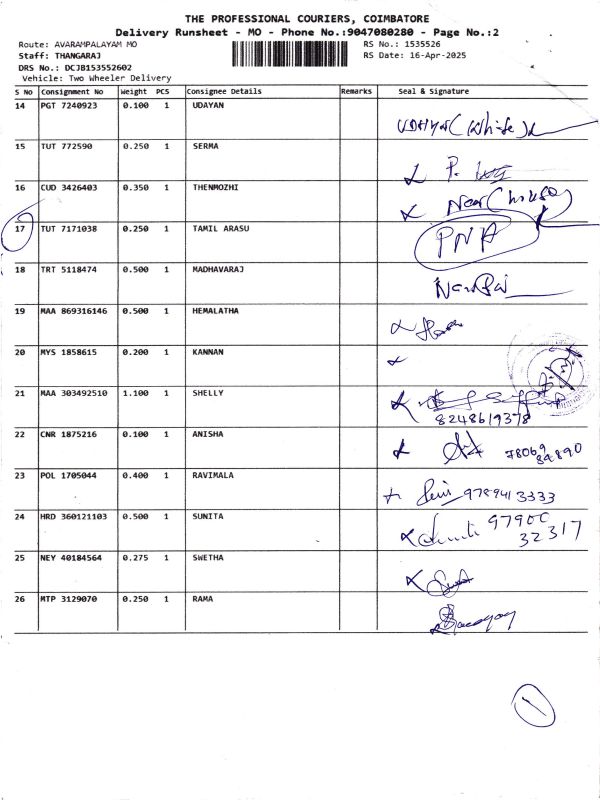 THE PROFESSIONAL COURIERS, COIMBATORE
Delivery Runsheet - MO - Phone No.:9047080280 - Page No.:2
Route: AVARAMPALAYAM MO
RS No.: 1535526
Staff: THANGARAJ
RS Date: 16-Apr-2025
DRS No.: DCJB153552602
Vehicle: Two Wheeler Delivery
S No Consignment No Weight PCS Consignee Details Remarks Seal & Signature
14 PGT 7240923 0.100 1 UDAYAN
15 TUT 772590 0.250 1 SERMA
16 CUD 3426403 0.350 1 THENMOZHI
17 TUT 7171038 0.250 1 TAMIL ARASU PNA
18 TRT 5118474 0.500 1 MADHAVARAJ
19 MAA 869316146 0.500 1 HEMALATHA
20 MYS 1858615 0.200 1 KANNAN
21 MAA 303492510 1.100 1 SHELLY
8248619378
22 CNR 1875216 0.100 1 ANISHA
23 POL 1705044 0.400 1 RAVIMALA 9789413333
24 HRD 360121103 0.500 1 SUNITA
32317
25 NEY 40184564 0.275 1 SWETHA
26 MTP 3129070 0.250 1 RAMA
1